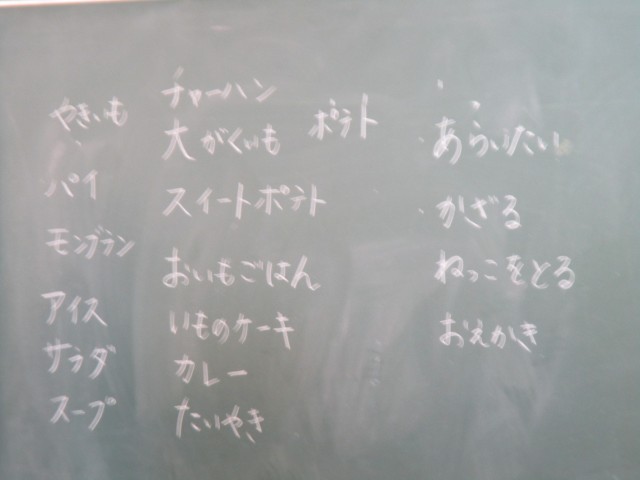 やきいも
パイ
モンブラン
アイス
サラダ
スープ
チャーハン
大がくいも
ポテト
スイートポテト
おいもごはん
いものケーキ
カレー
たいやき
あらいたい
かざる
ねっこをとる
おえかき